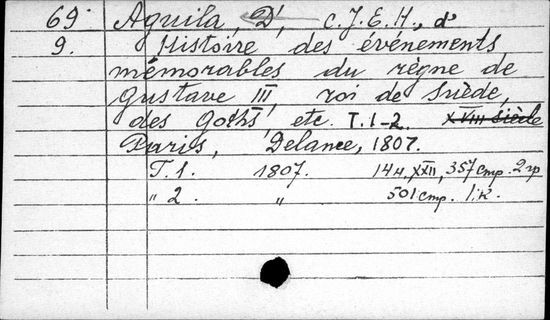 69. Aquila, D', C.J.E.H., d'
9. Histoire des événements
mémorables du règne de
gustave III, roi de Suède,
des goths, etc. T. 1-2. XVIII siècle
Paris, Delance, 1807.
T. 1. 1807. XXII, 357 стр.
„ 2. „ 501 стр. 1 к.